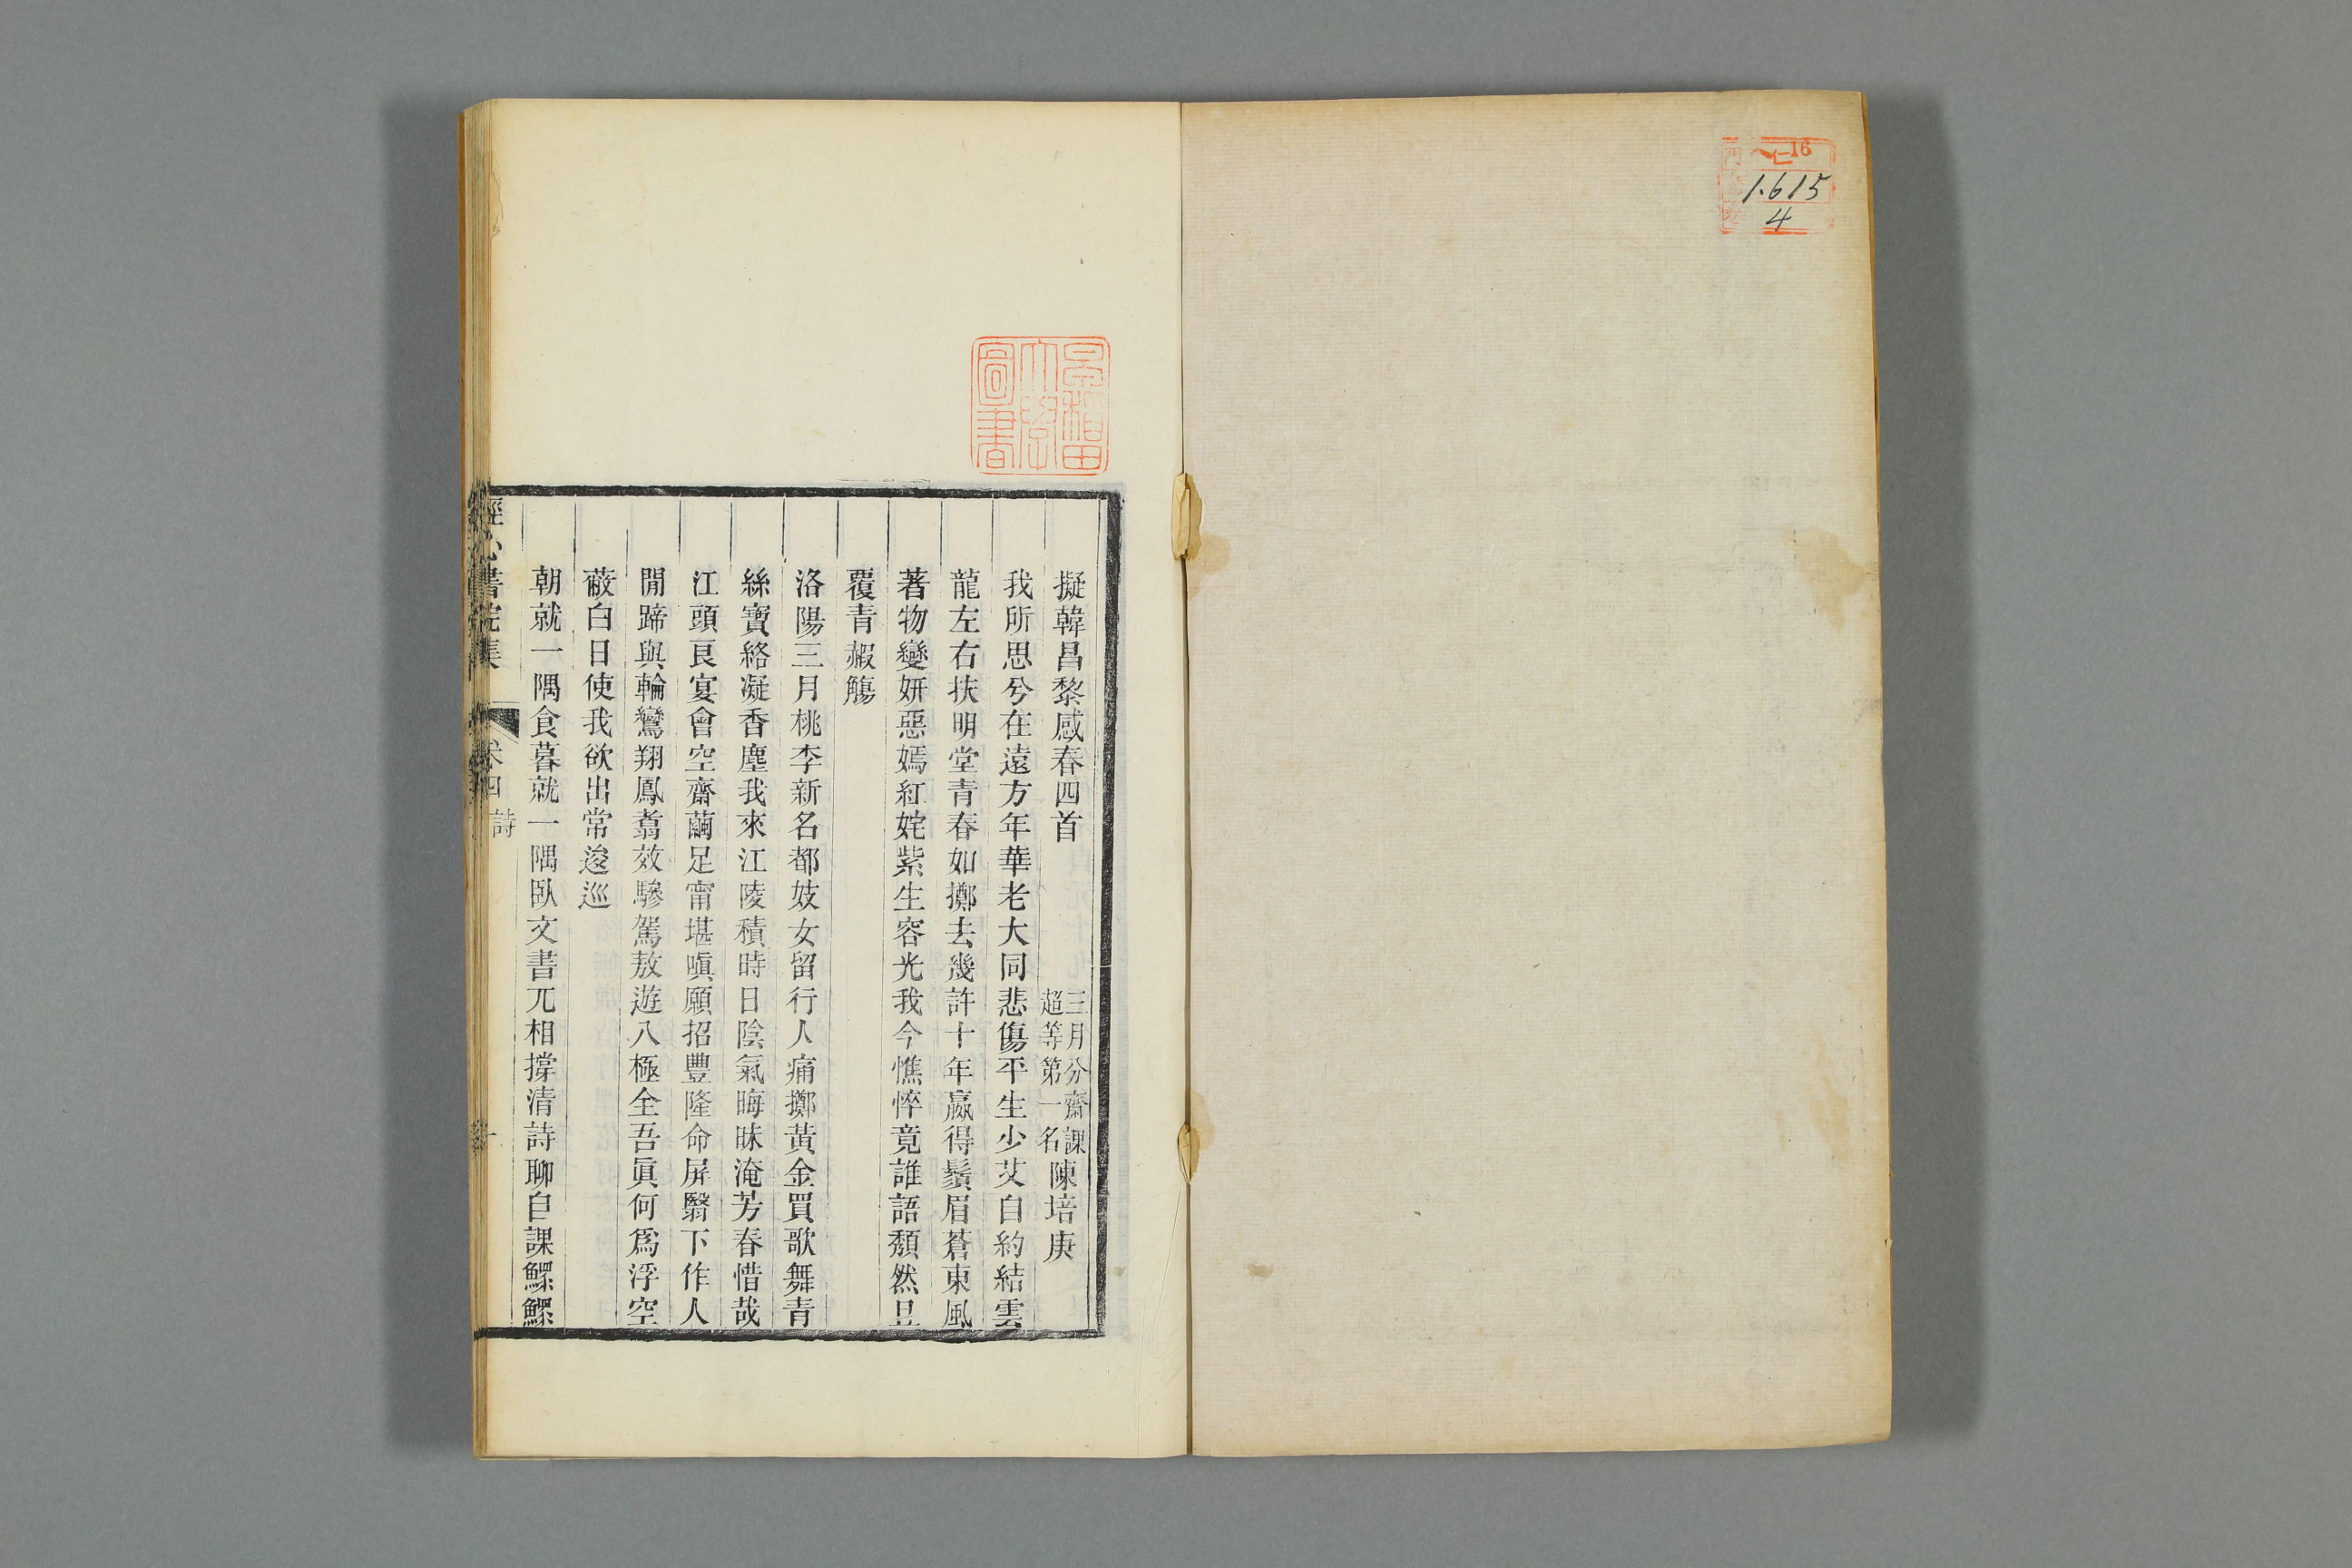 仁16
1.615
4
早稲田
大學
圖書
擬韓昌黎感春四首 三月分齋課超等第一名 陳培庚
我所思兮在遠方年華老大同悲傷平生少艾自約結雲
龍左右扶明堂青春如擲去幾許十年嬴得鬚眉蒼東風
著物變妍惡嫣紅姹紫生容光我今憔悴竟誰語頽然且
覆青瘕觴
洛陽三月桃李新名都妓女留行人痛擲黃金買歌舞青
絲寶絡凝香塵我來江陵積時日陰氣晦昧淹芳春惜哉
江頭良宴會空齋繭足甯堪嗔願招豐隆命屏翳下作人
閒蹄與輪鸞翔鳳翥效驂駕敖遊八極全吾眞何爲浮空
蔽白日使我欲出常逡巡
朝就一隅食暮就一隅臥文書兀相撐清詩聊自課鰥鰥
經心書院集 卷四 詩 一